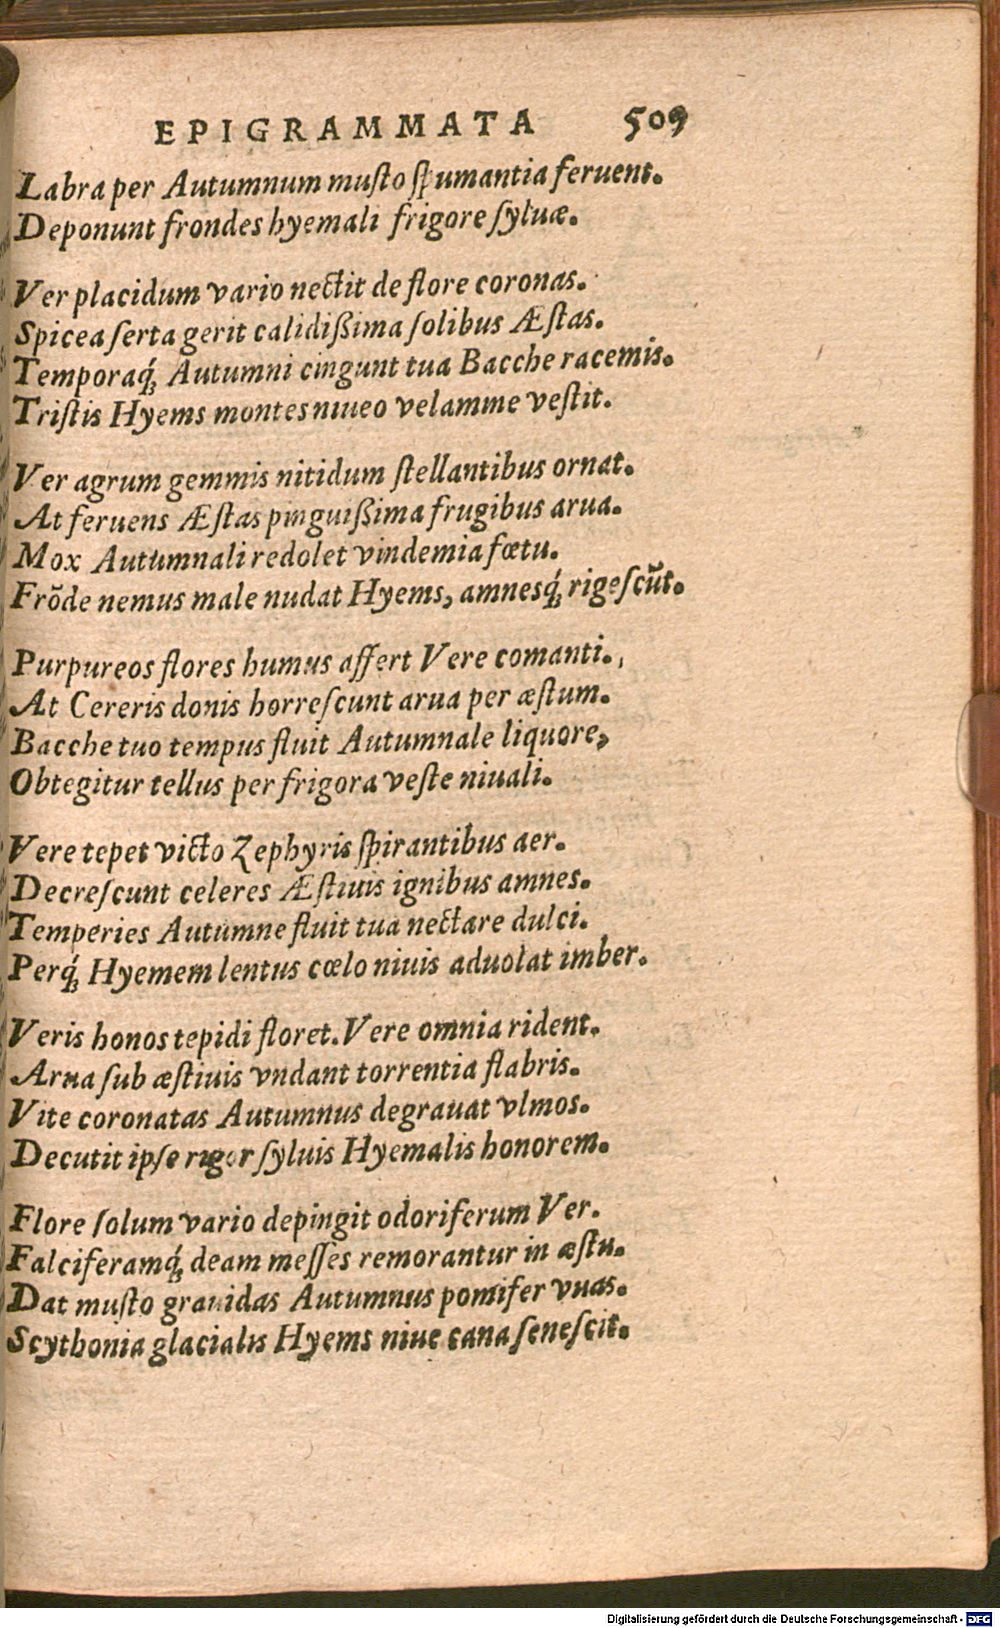 EPIGRAMMATA 509
Labra per Autumnum muſto ſpumantia feruent.
Deponunt frondes hyemali frigore ſyluæ.
Ver placidum vario nectit de flore coronas.
Spicea ſerta gerit calidißima ſolibus Æſtas.
Temporaq́; Autumni cingunt tua Bacche racemis.
Triſtis Hyems montes niueo velamine veſtit.
Ver agrum gemmis nitidum ſtellantibus ornat.
At feruens Æſtas pinguißima frugibus arua.
Mox Autumnali redolet vindemia fœtu.
Frõde nemus male nudat Hyems, amnesq́; rigeſcũt.
Purpureos flores humus affert Vere comanti.
At Cereris donis horreſcunt arua per æſtum.
Bacche tuo tempus fluit Autumnale liquore,
Obtegitur tellus per frigora veſte niuali.
Vere tepet victo Zephyris ſpirantibus aer.
Decreſcunt celeres Æſtiuis ignibus amnes.
Temperies Autumne fluit tua nectare dulci.
Perq́; Hyemem lentus cœlo niuis aduolat imber.
Veris honos tepidi floret. Vere omnia rident.
Arua ſub æſtiuis vndant torrentia flabris.
Vite coronatas Autumnus degrauat vlmos.
Decutit ipſe rigor ſyluis Hyemalis honorem.
Flore ſolum vario depingit odoriferum Ver.
Falciferamq́; deam meſſes remorantur in æſtu.
Dat muſto grauidas Autumnus pomifer vuas.
Scythonia glacialis Hyems niue cana ſeneſcit.
Digitalisierung gefördert durch die Deutsche Forschungsgemeinschaft - DFG